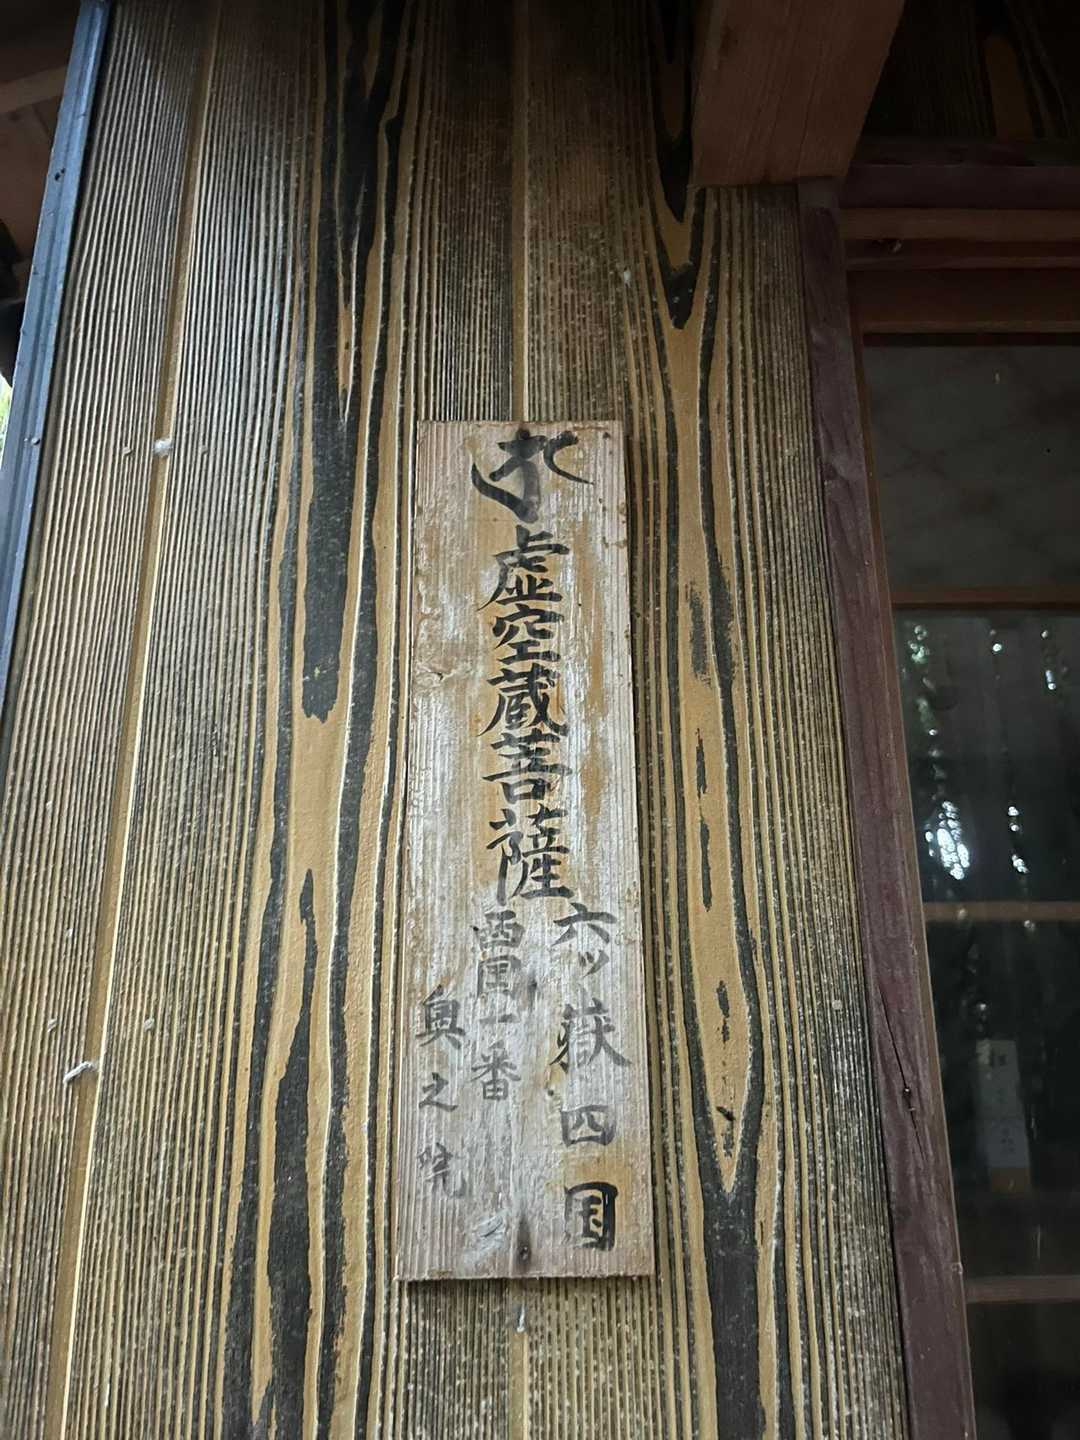 虚空蔵菩薩
六ッ嶽四国
西国一番
奥之院